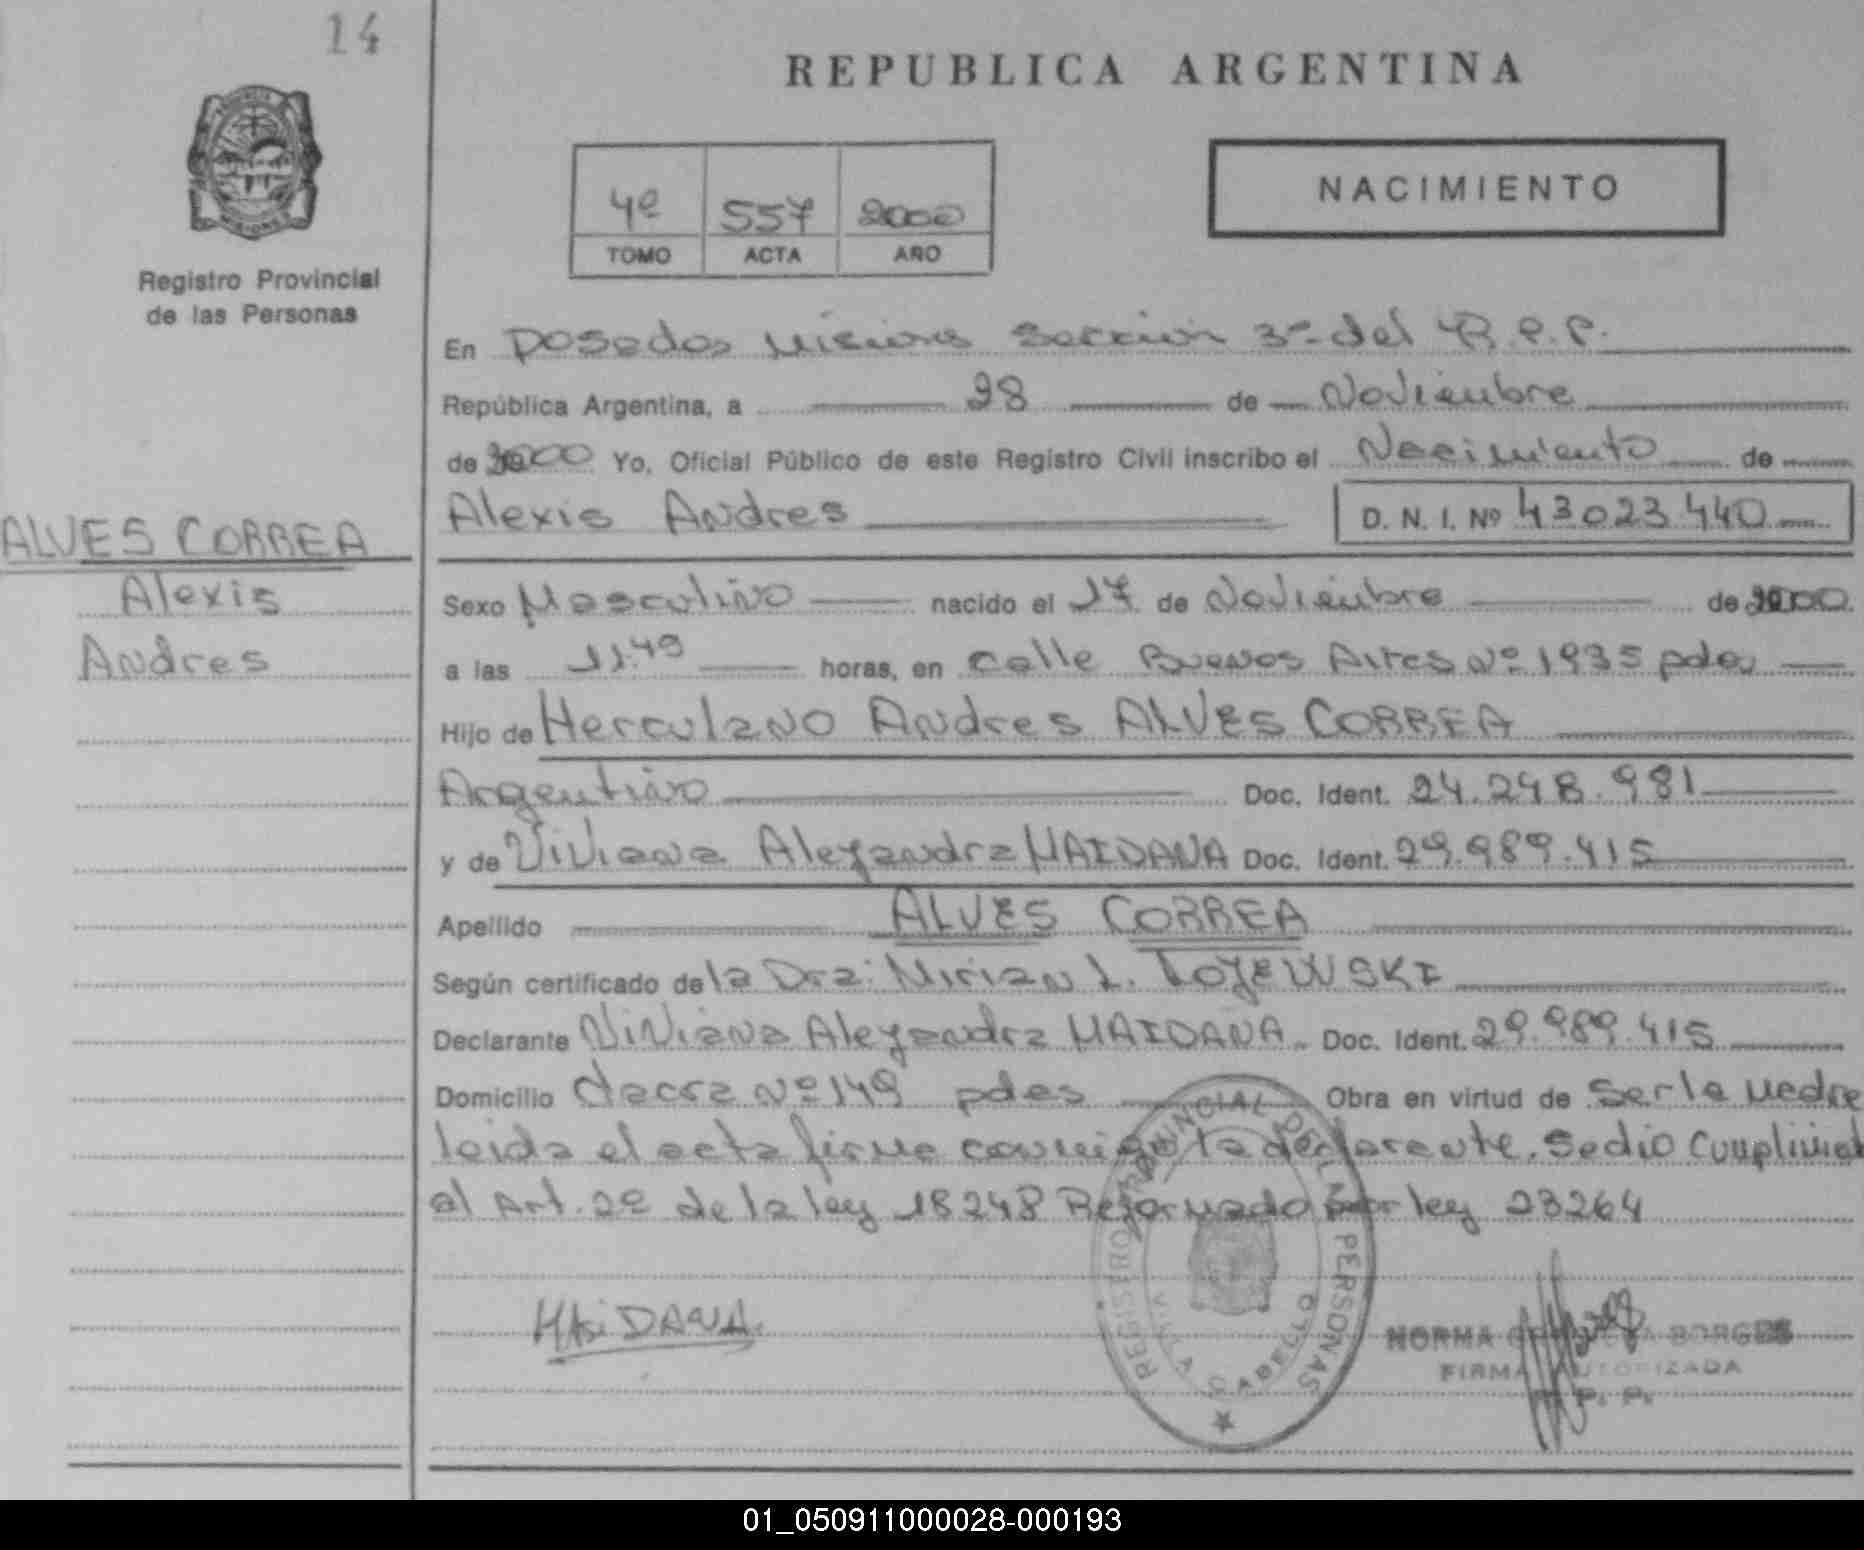 14
REPUBLICA ARGENTINA
4º 557 2000
TOMO ACTA AÑO
NACIMIENTO
Registro Provincial
de las Personas
En Posadas Misiones Sección 3ª del R.P.P.
República Argentina, a 28 de Noviembre
de 2000 Yo, Oficial Público de este Registro Civil inscribo el Nacimiento de
Alexis Andres D. N. I. Nº 43023440
ALVES CORREA
Alexis
Andres
Sexo Masculino nacido el 17 de Noviembre de 2000
a las 11:49 horas, en calle Buenos Aires Nº 1935 pdas
Hijo de Herculano Andres ALVES CORREA
Argentino Doc. Ident. 24.248.981
y de Viviana Alejandra MAIDANA Doc. Ident. 29.989.415
Apellido ALVES CORREA
Según certificado de la Dra: Mirian L. TOJEWSKI
Declarante Viviana Alejandra MAIDANA Doc. Ident. 29.989.415
Domicilio Nº 149 pdas Obra en virtud de ser la Madre
leida el acta firma conmigo la declarante. Se dio Cumplimiet
al Art. 2º de la ley 18248 Reformado por ley 23264
MAiDANA
REGISTRO PROVINCIAL DE LAS PERSONAS
NORMA BORGES
FIRMA AUTORIZADA
R. P. P.
01_050911000028-000193